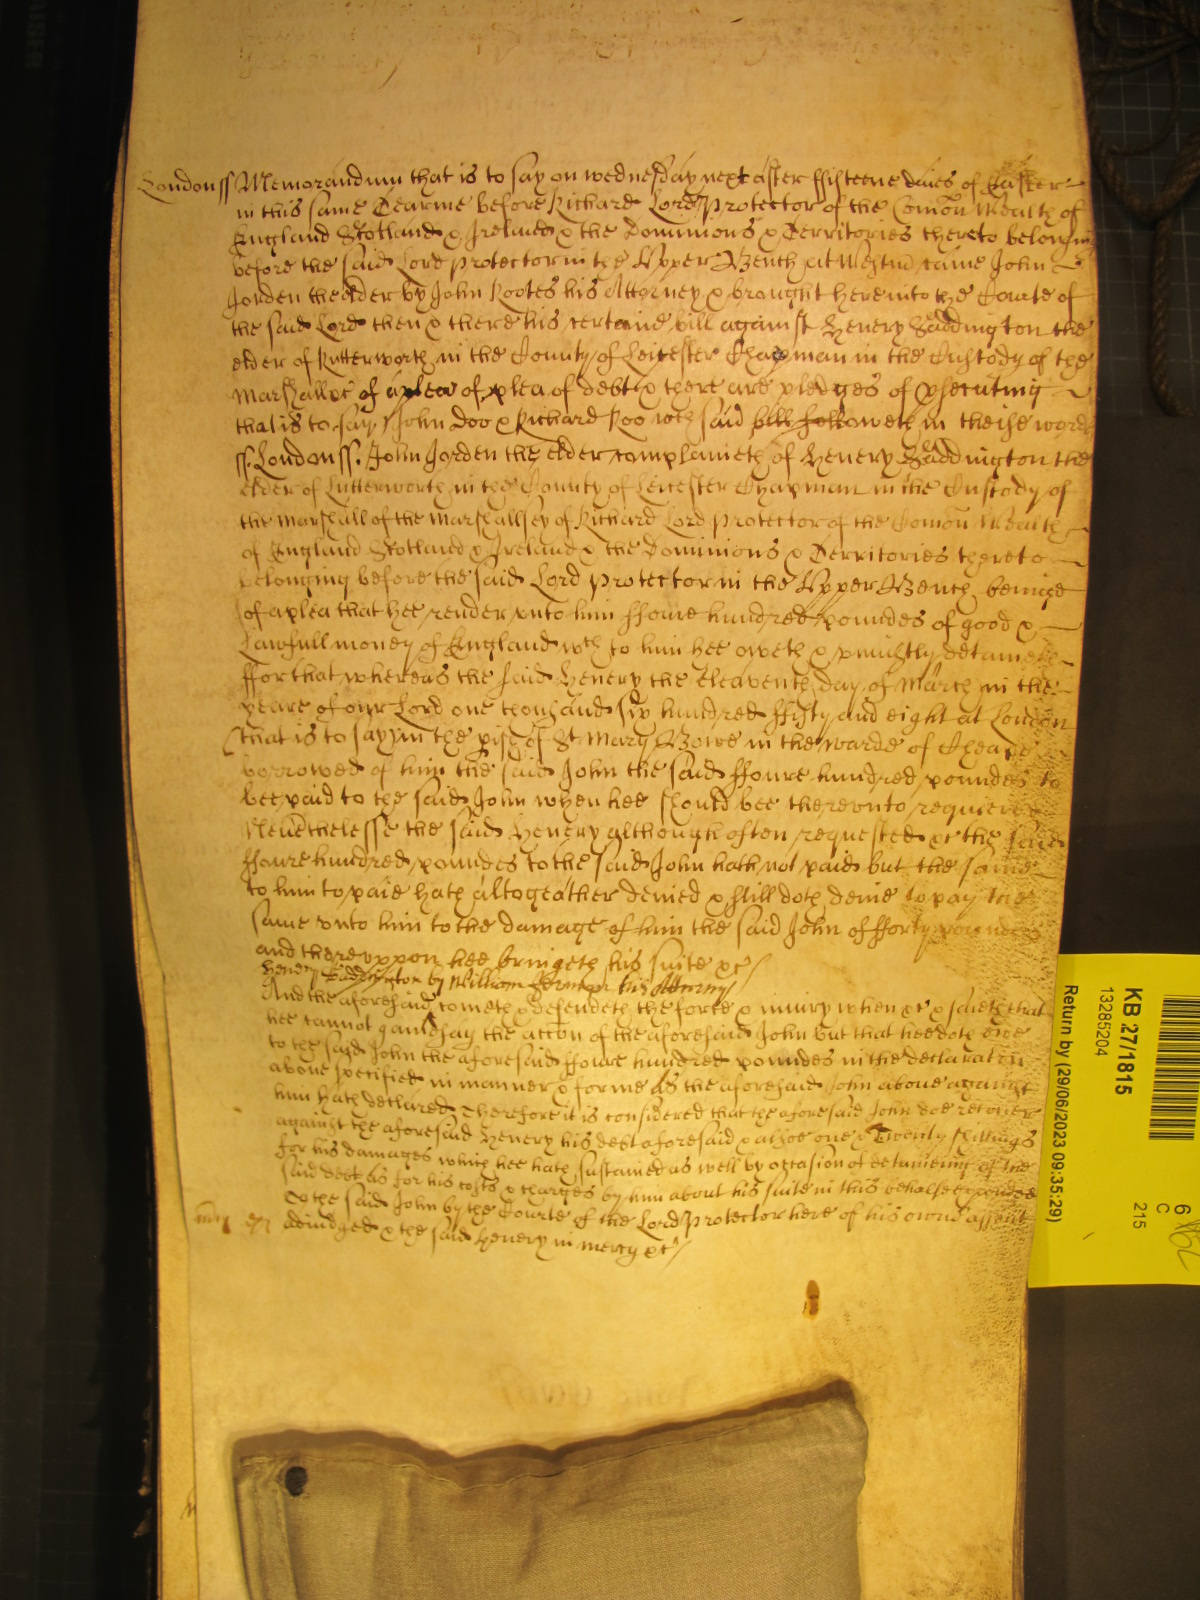 London ss Memorandum that is to say on wednesday next after ffifteene daies of Easter
in this same Tearme before Richard Lord Protector of the Comon Wealth of
England Scotland & Ireland & the Dominions & Territories thereto belonging
before the said Lord Protector in the Upper Bench att Westm came John
Jorden the elder by John Rootes his Attorney & brought here into the Courte of
the said Lord then & there his certaine bill against Henery Baddington the
elder of Lutterworth in the County of Leicester Chapman in the Custody of the
Marshall &c of a plea of debt & there are pledges of psecuting
that is to say John Doo & Richard Roo wch said bill followeth in theise words
ss. London ss. John Jorden the elder complaineth of Henery Baddington the
elder of Lutterworth in the County of Leicester Chapman in the Custody of
the Marshall of the Marshallsey of Richard Lord Protector of the Comon Wealth
of England Scotland & Ireland & the Dominions & Territories thereto
belonging before the said Lord Protector in the Upper Bench beinge
of a plea that hee render unto him ffoure hundred poundes of good &
Lawfull money of England wch to him hee oweth & uniustly detaineth
ffor that whereas the said Henery the eleaventh day of March in the
yeare of our Lord one thousand six hundred ffifty and eight at London
(that is to say) in the pish of St Mary Bowe in the warde of Cheape
borrowed of him the said John the said ffoure hundred poundes to
bee paid to the said John when hee should bee thereunto required
Neverthelesse the said Henery although often requested &c the said
ffoure hundred poundes to the said John hath not paid but the same
to him to paie hath altogeather denied & still doth denie to pay the
same unto him to the damage of him the said John of fforty poundes
and thereuppon hee bringeth his suite &c
Henery Baddington by William his Attorney
And the aforesaid cometh & defendeth the force & iniury when &c & saieth that
hee cannot gainesay the accon of the aforesaid John but that hee doth owe
to the said John the aforesaid ffoure hundred poundes in the declaracon
above specified in manner & forme as the aforesaid John above against
him hath declared Therefore it is considered that the aforesaid John doe recover
against the aforesaid Henery his debt aforesaid & alsoe one & Twenty shillings
for his damages which hee hath sustained as well by occasion of detaineing of the
said debt as for his costs & charges by him about his suite in this behalfe expended
to the said John by the Courte of the Lord Protector here of his owne assent
adiudged & the said Henery in mercy &c
KB 27/1815
13285204
Return by (29/06/2023 09:35:29)
6
C
215